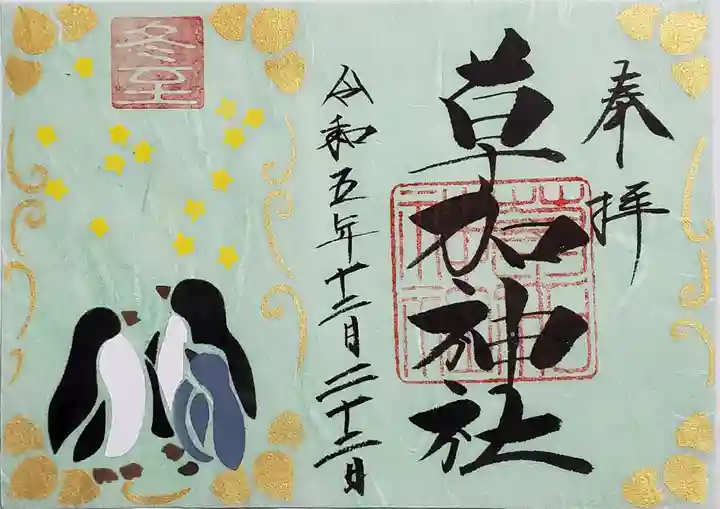 奉拝
草加神社
草加神社
令和五年十二月二十二日
冬至